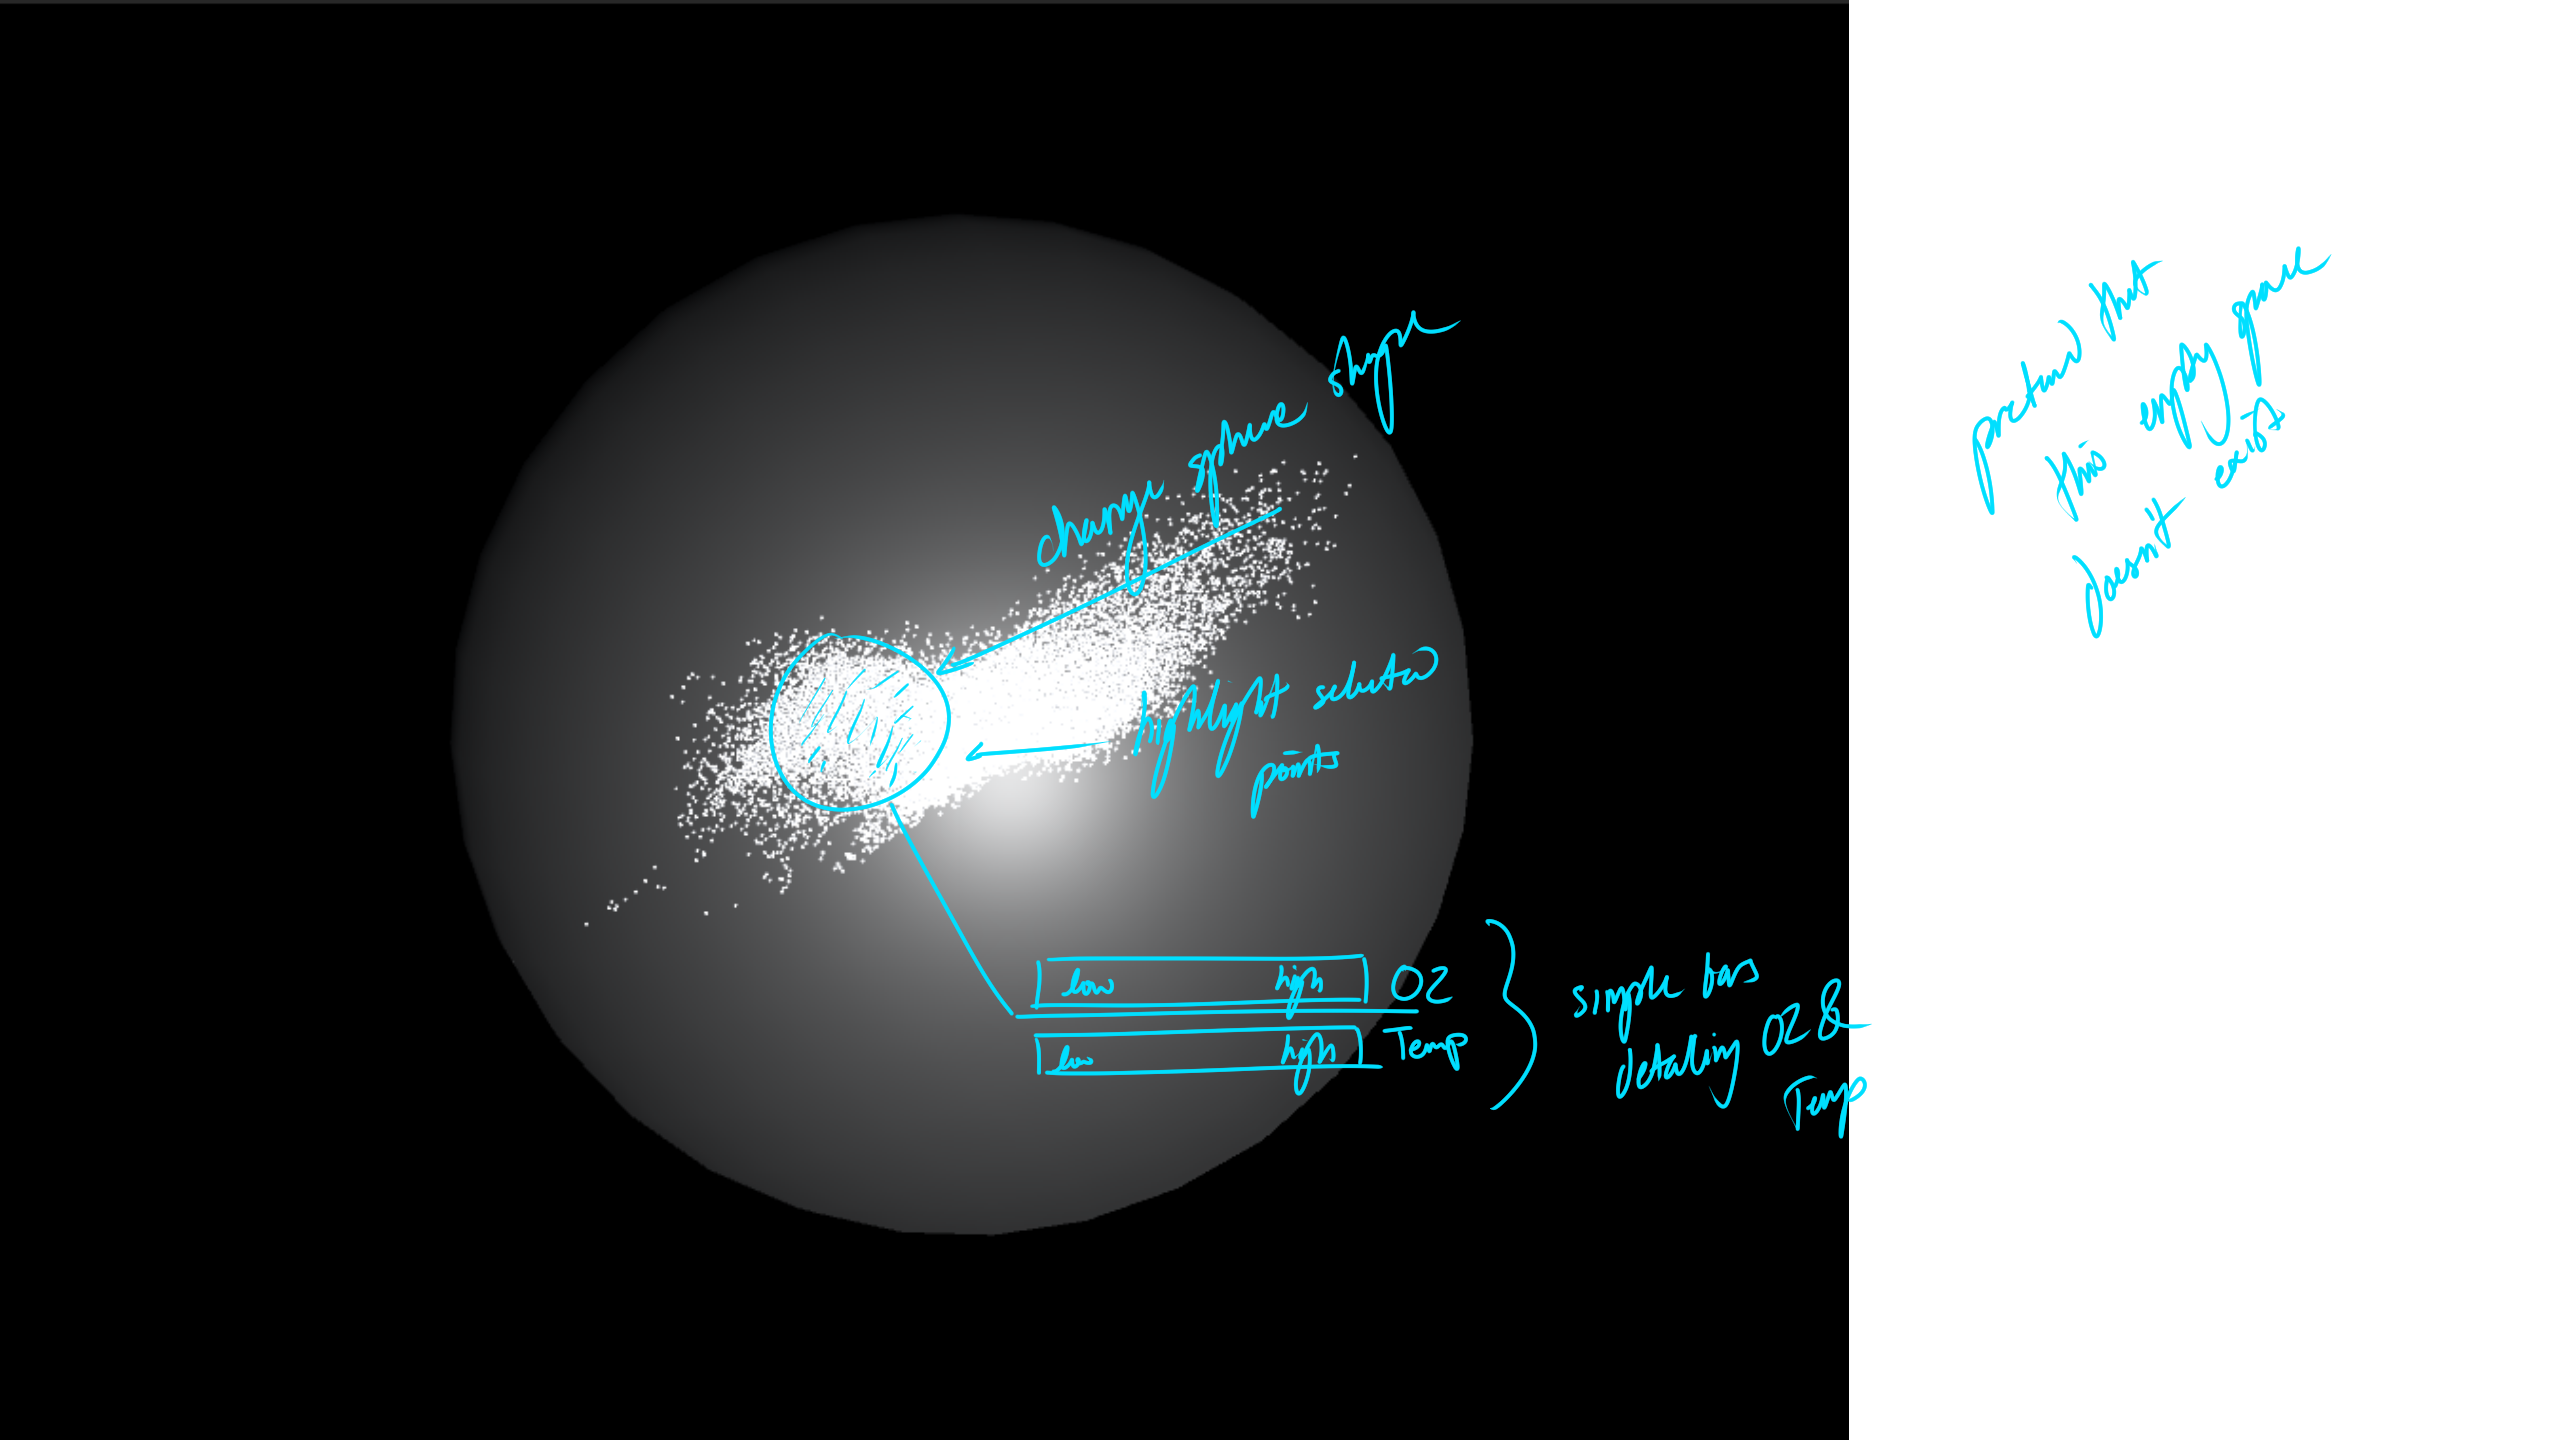 change sphere shape
highlight selected
points
low high O2
low high Temp
simple bars
detailing O2 &
Temp
pretend that
this empty space
doesn't exist